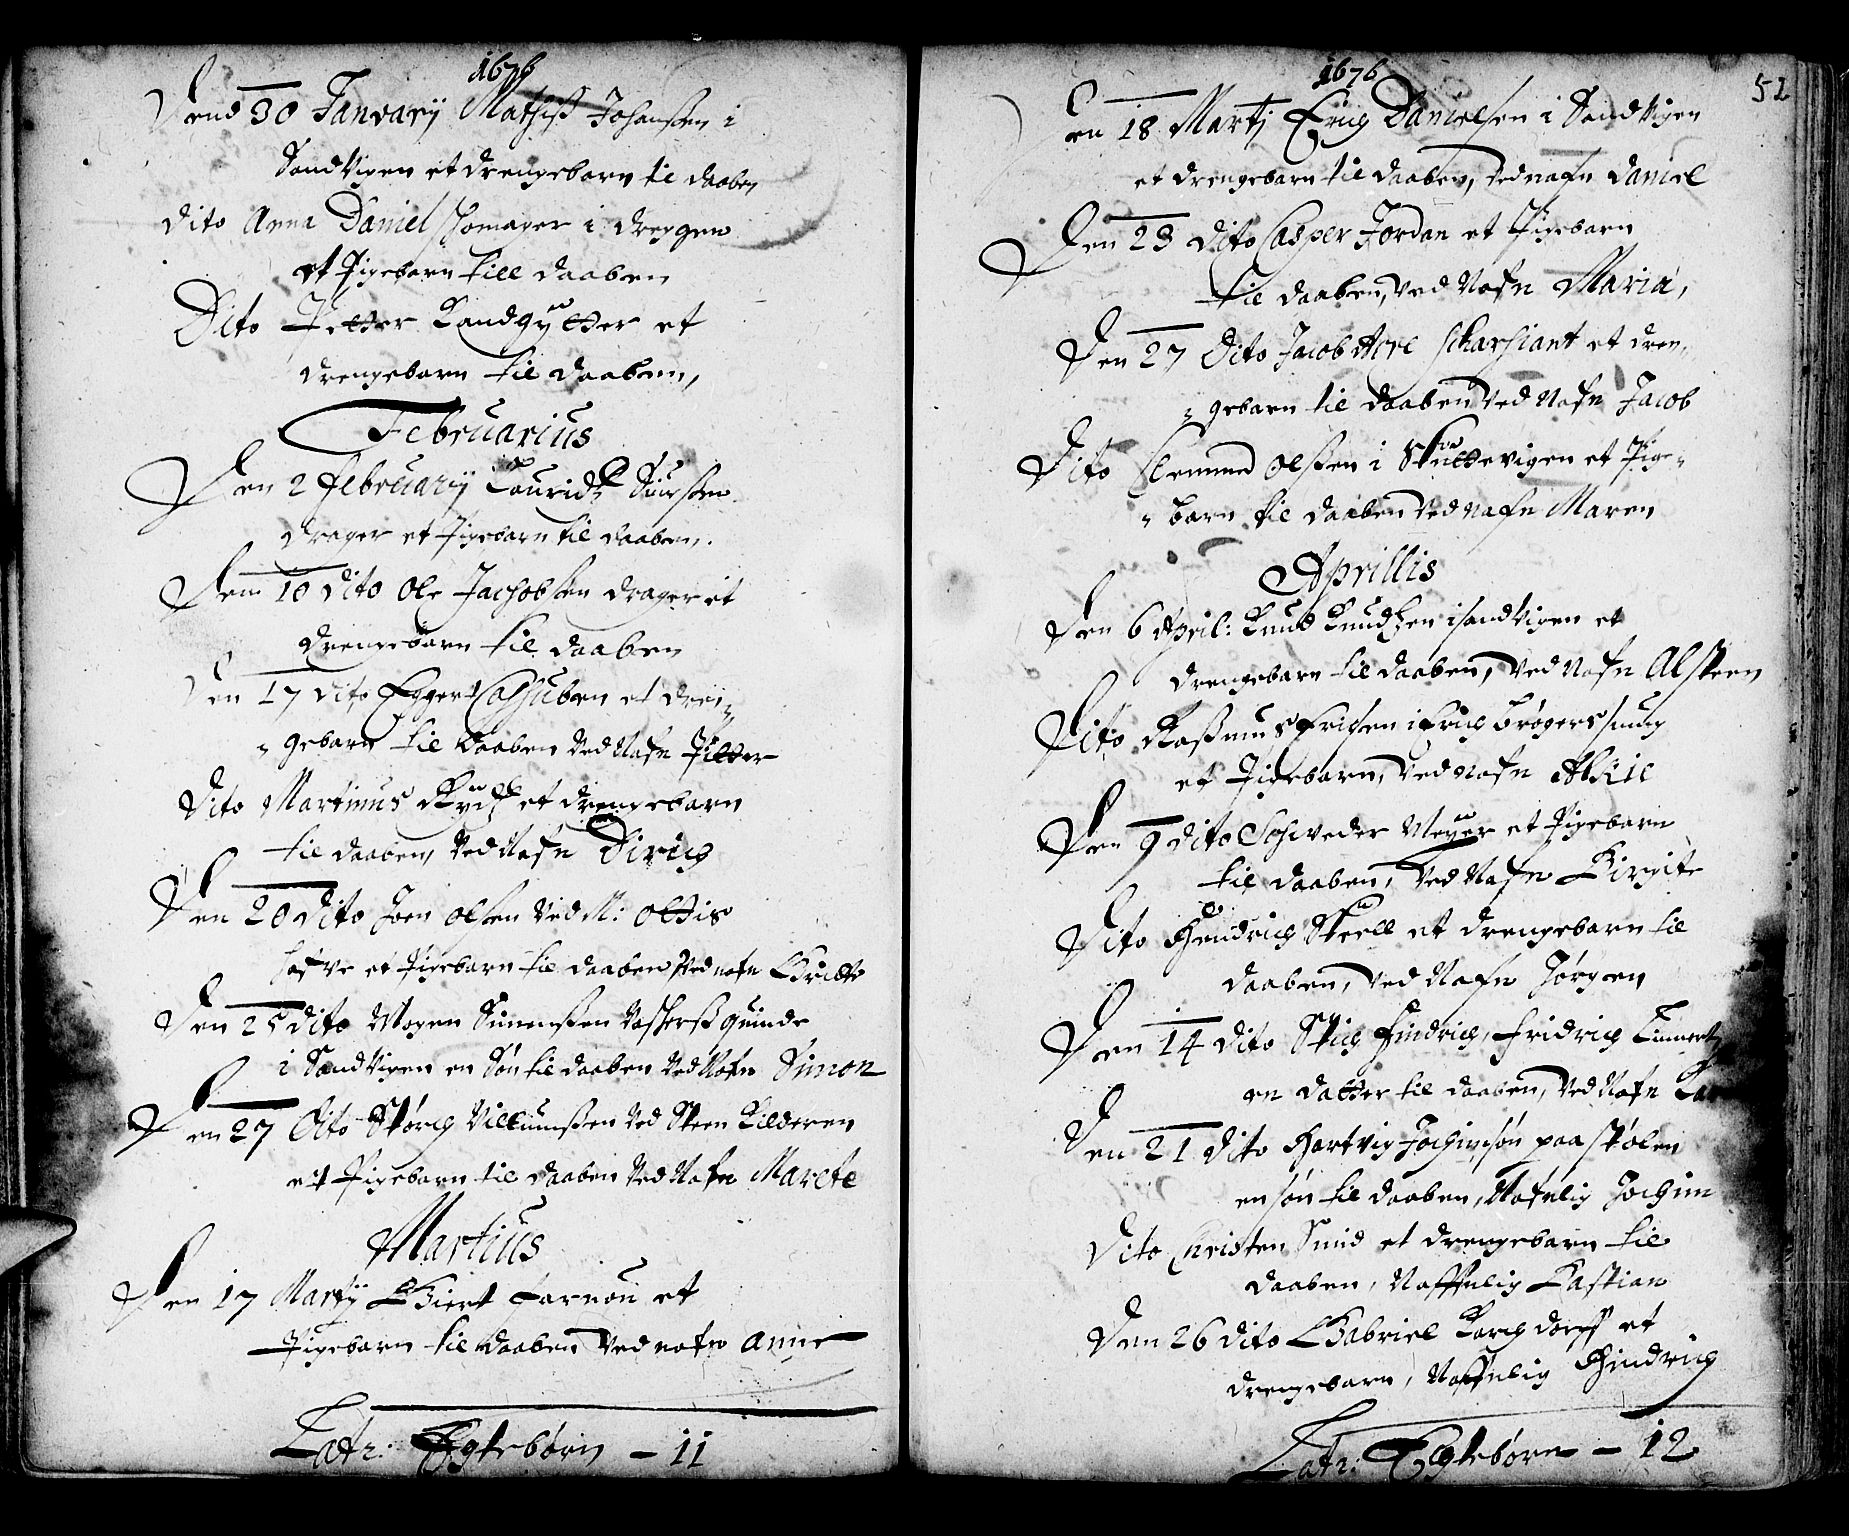 1676
Dend 30 Janvarij Mathis Johanssen i
Sandvigen et drengebarn til daaben
dito Anna Daniel schomager i dreggen
et Pigebarn till daaben
Dito Petter Kandgytter et
drengebarn til daaben,
Februarius
Den 2 februarij Lauridz
drager et Pigebarn til daaben.
Den 10 dito Ole Jachobsen drager et
drengebarn til daaben
Den 17 dito Eggert et dren=
= gebarn til daaben ved Nafn Petter
dito Martinus et drengebarn
til daaben, ved Nafn Dirich
Den 20 dito Joen olsen ved M: oltis
hafve et Pigebarn til daaben ved nafn Gritte
Den 25 dito Mogen Simenssen quinde
i Sandvigen en Søn til daaben ved Nafn Simon
Den 27 dito Villumssen ved Steen Kilderen
et Pigebarn til daaben ved Nafn Marete
Martius
Den 17 Martij Giert Farnou et
Pigebarn til daaben ved nafn Anne
Latr: Egtebørn – 11
1676
52
Den 18 Martj Erich Danielsen i Sandvigen
et drengebarn til daaben, ved nafn Daniel
Den 23 dito Casper Jordan et Pigebarn
til daaben, ved Nafn Maria,
Den 27 dito Jacob scharsiant et dren,
= gebarn til daaben ved Nafn Jacob
Dito Clemmed olssen i Skuttevigen et Pige=
= barn til daaben ved nafn Maren
Aprillis
Den 6 April: Knud Knudzen i sandvigen et
drengebarn til daaben, ved Nafn Alsteen
Dito Rasmus Erichsen i Erich brøgers smug
et Pigebarn, ved nafn
Den 9 dito Schweder Meyer et Pigebarn
til daaben, ved Nafn Birgite
Dito Hendrich et drengebarn til
daaben, ved Nafn Jørgen
Den 14 dito Stich Hindrich, Fridrich
en datter til daaben, ved Nafn
Den 21 dito Hartvig Jochimsøn paa stølen
en søn til daaben, Nafnlig Jochim
Dito Christen Smid et drengebarn til
daaben, Naffnlig Bastian
Den 26 dito Gabriel et
drengebarn, Naffnlig Hindrich
Latr: Egtebørn – 12